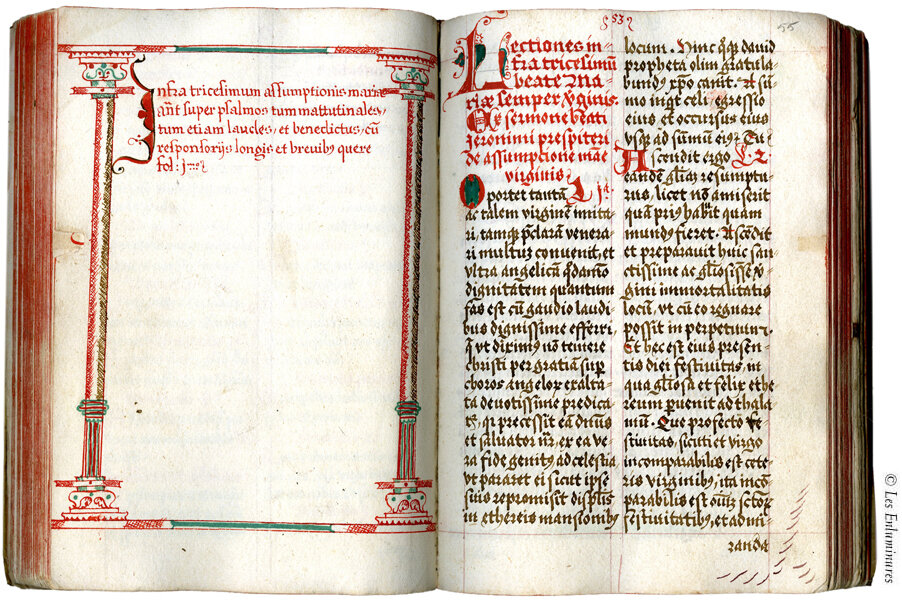 Infra tricesimum assumptionis mariae
ant super psalmos tum mattutinales,
tum etiam laudes, et benedictus, cū
responsorijs longis et brevibus quere
fol:
53
55
Lectiones in-
fra tricesimū
beate Ma-
riæ semper vginis.
Ex sermone beati
ieronimi presbiteri
de assumpcione mariæ
virginis
Oportet tantā L ja
ac talem virginē imita
ri, tamqz pclaram venera-
ri multum convenit, et
ultra angelicā qdāmō
dignitatem quantum
fas est cū gaudio laudi
bus dignissime efferri,
q ut diximus nō temere
christi per gratiā sup
choros angelorum exalta-
ta devotissime predica
qi precessit eā dnus
et salvator nr, ex ea ve
ra fide genitus ad celestia
ut pararet ei sicut ipse
suis repromisit
in ethereis mansionibus
locum. Hinc qqz david
propheta olim gratula-
bundus xpo canit. A sū
mo inqt celi egressio
eius et occursus eius
usqz ad sūmum eius. Tu
Ascendit ergo L 2
eandē gliam resumptu-
rus, licet nō amiserit
quā prius habuit quam
mundus fieret. Ascēdit
et preparavit huic san-
ctissime ac gliosissē v
gini immortalitatis
locū, ut cū eo regnare
possit in perpetuum.
Et hec est eius presen-
tis diei festivitas, in
qua gliosa et felix ethe
reum pvenit ad thala
mū. Que profecto fe
stivitas, sicuti et virgo
incomparabilis est cete-
ris virginibus, ita incō
parabilis est oīuz sctorz
festivitatibus, et admi-
randa
© Les Enluminures